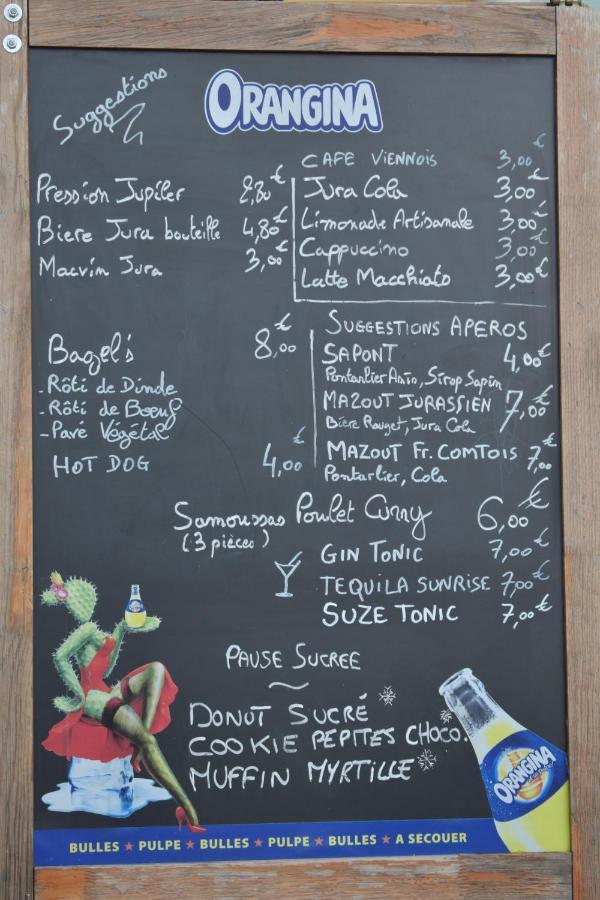 Suggestions
ORANGINA
CAFE VIENNOIS 3,00€
Pression Jupiler 2,80€
Jura Cola 3,00€
Biere Jura bouteille 4,80€
Limonade Artisanale 3,00€
Macvin Jura 3,00€
Cappuccino 3,00€
Latte Macchiato 3,00€
Bagel's 8,00€
- Rôti de Dinde
- Rôti de Boeuf
- Pavé Végétal
HOT DOG 4,00€
SUGGESTIONS APEROS
SAPONT 4,00€
Pontarlier Anis, Sirop Sapin
MAZOUT JURASSIEN 7,00€
Bière Rouget, Jura Cola
MAZOUT Fr. COMTOIS 7,00€
Pontarlier, Cola
Samoussas Poulet Curry 6,00€
(3 pièces)
GIN TONIC 7,00€
TEQUILA SUNRISE 7,00€
SUZE TONIC 7,00€
PAUSE SUCREE
DONUT SUCRÉ
COOKIE PEPITES CHOCO.
MUFFIN MYRTILLE
ORANGINA
BULLES ★ PULPE ★ BULLES ★ PULPE ★ BULLES ★ A SECOUER